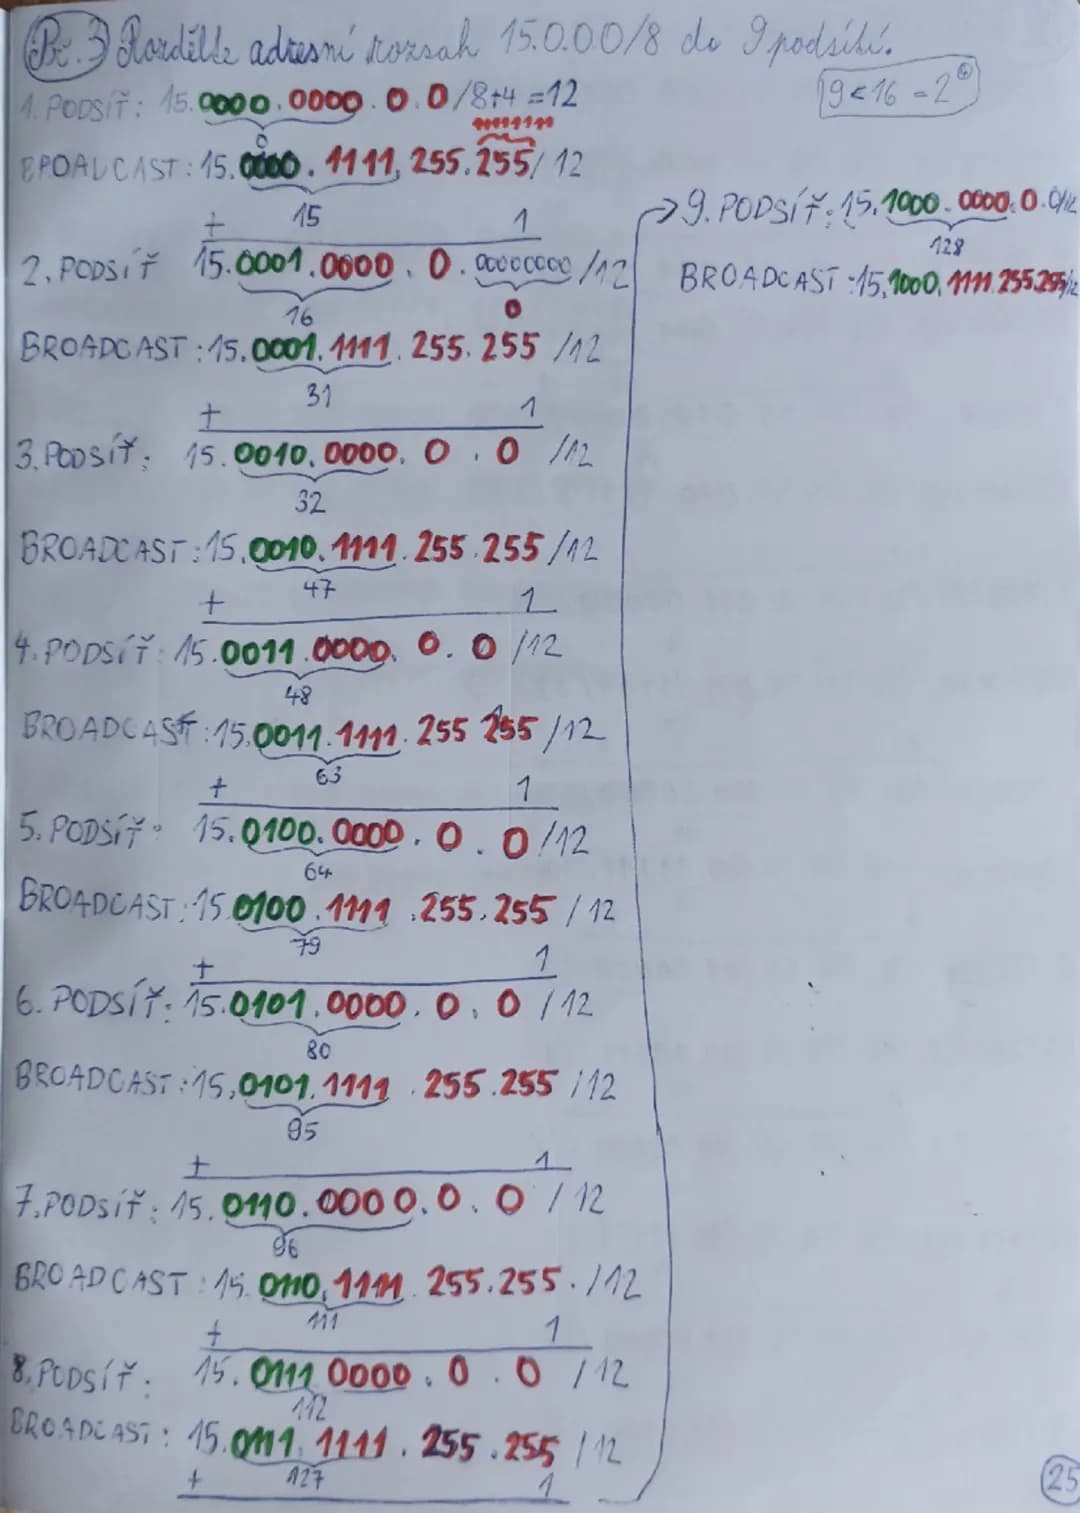 Př. 3 Rozdělte adresní rozsah 15.0.0.0/8 do 9 podsítí.
9 < 16 = 2^4
1. PODSÍŤ: 15.0000.0000.0.0/8+4 =12
0
11111111
BROADCAST: 15.0000.1111.255.255/12
15
+ 1
2. PODSÍŤ 15.0001.0000.0.00000000/12
16 0
BROADCAST: 15.0001.1111.255.255/12
31
+ 1
3. PODSÍŤ: 15.0010.0000.0.0/12
32
BROADCAST: 15.0010.1111.255.255/12
47
+ 1
4. PODSÍŤ: 15.0011.0000.0.0/12
48
BROADCAST: 15.0011.1111.255 255/12
63
+ 1
5. PODSÍŤ: 15.0100.0000.0.0/12
64
BROADCAST: 15.0100.1111.255.255/12
79
+ 1
6. PODSÍŤ: 15.0101.0000.0.0/12
80
BROADCAST: 15.0101.1111.255.255/12
95
+ 1
7. PODSÍŤ: 15.0110.0000.0.0/12
96
BROADCAST: 15.0110.1111.255.255./12
111
+ 1
8. PODSÍŤ: 15.0111.0000.0.0/12
112
BROADCAST: 15.0111.1111.255.255/12
127
+ 1
→ 9. PODSÍŤ: 15.1000.0000.0.0/12
128
BROADCAST: 15.1000.1111.255.255/12
25